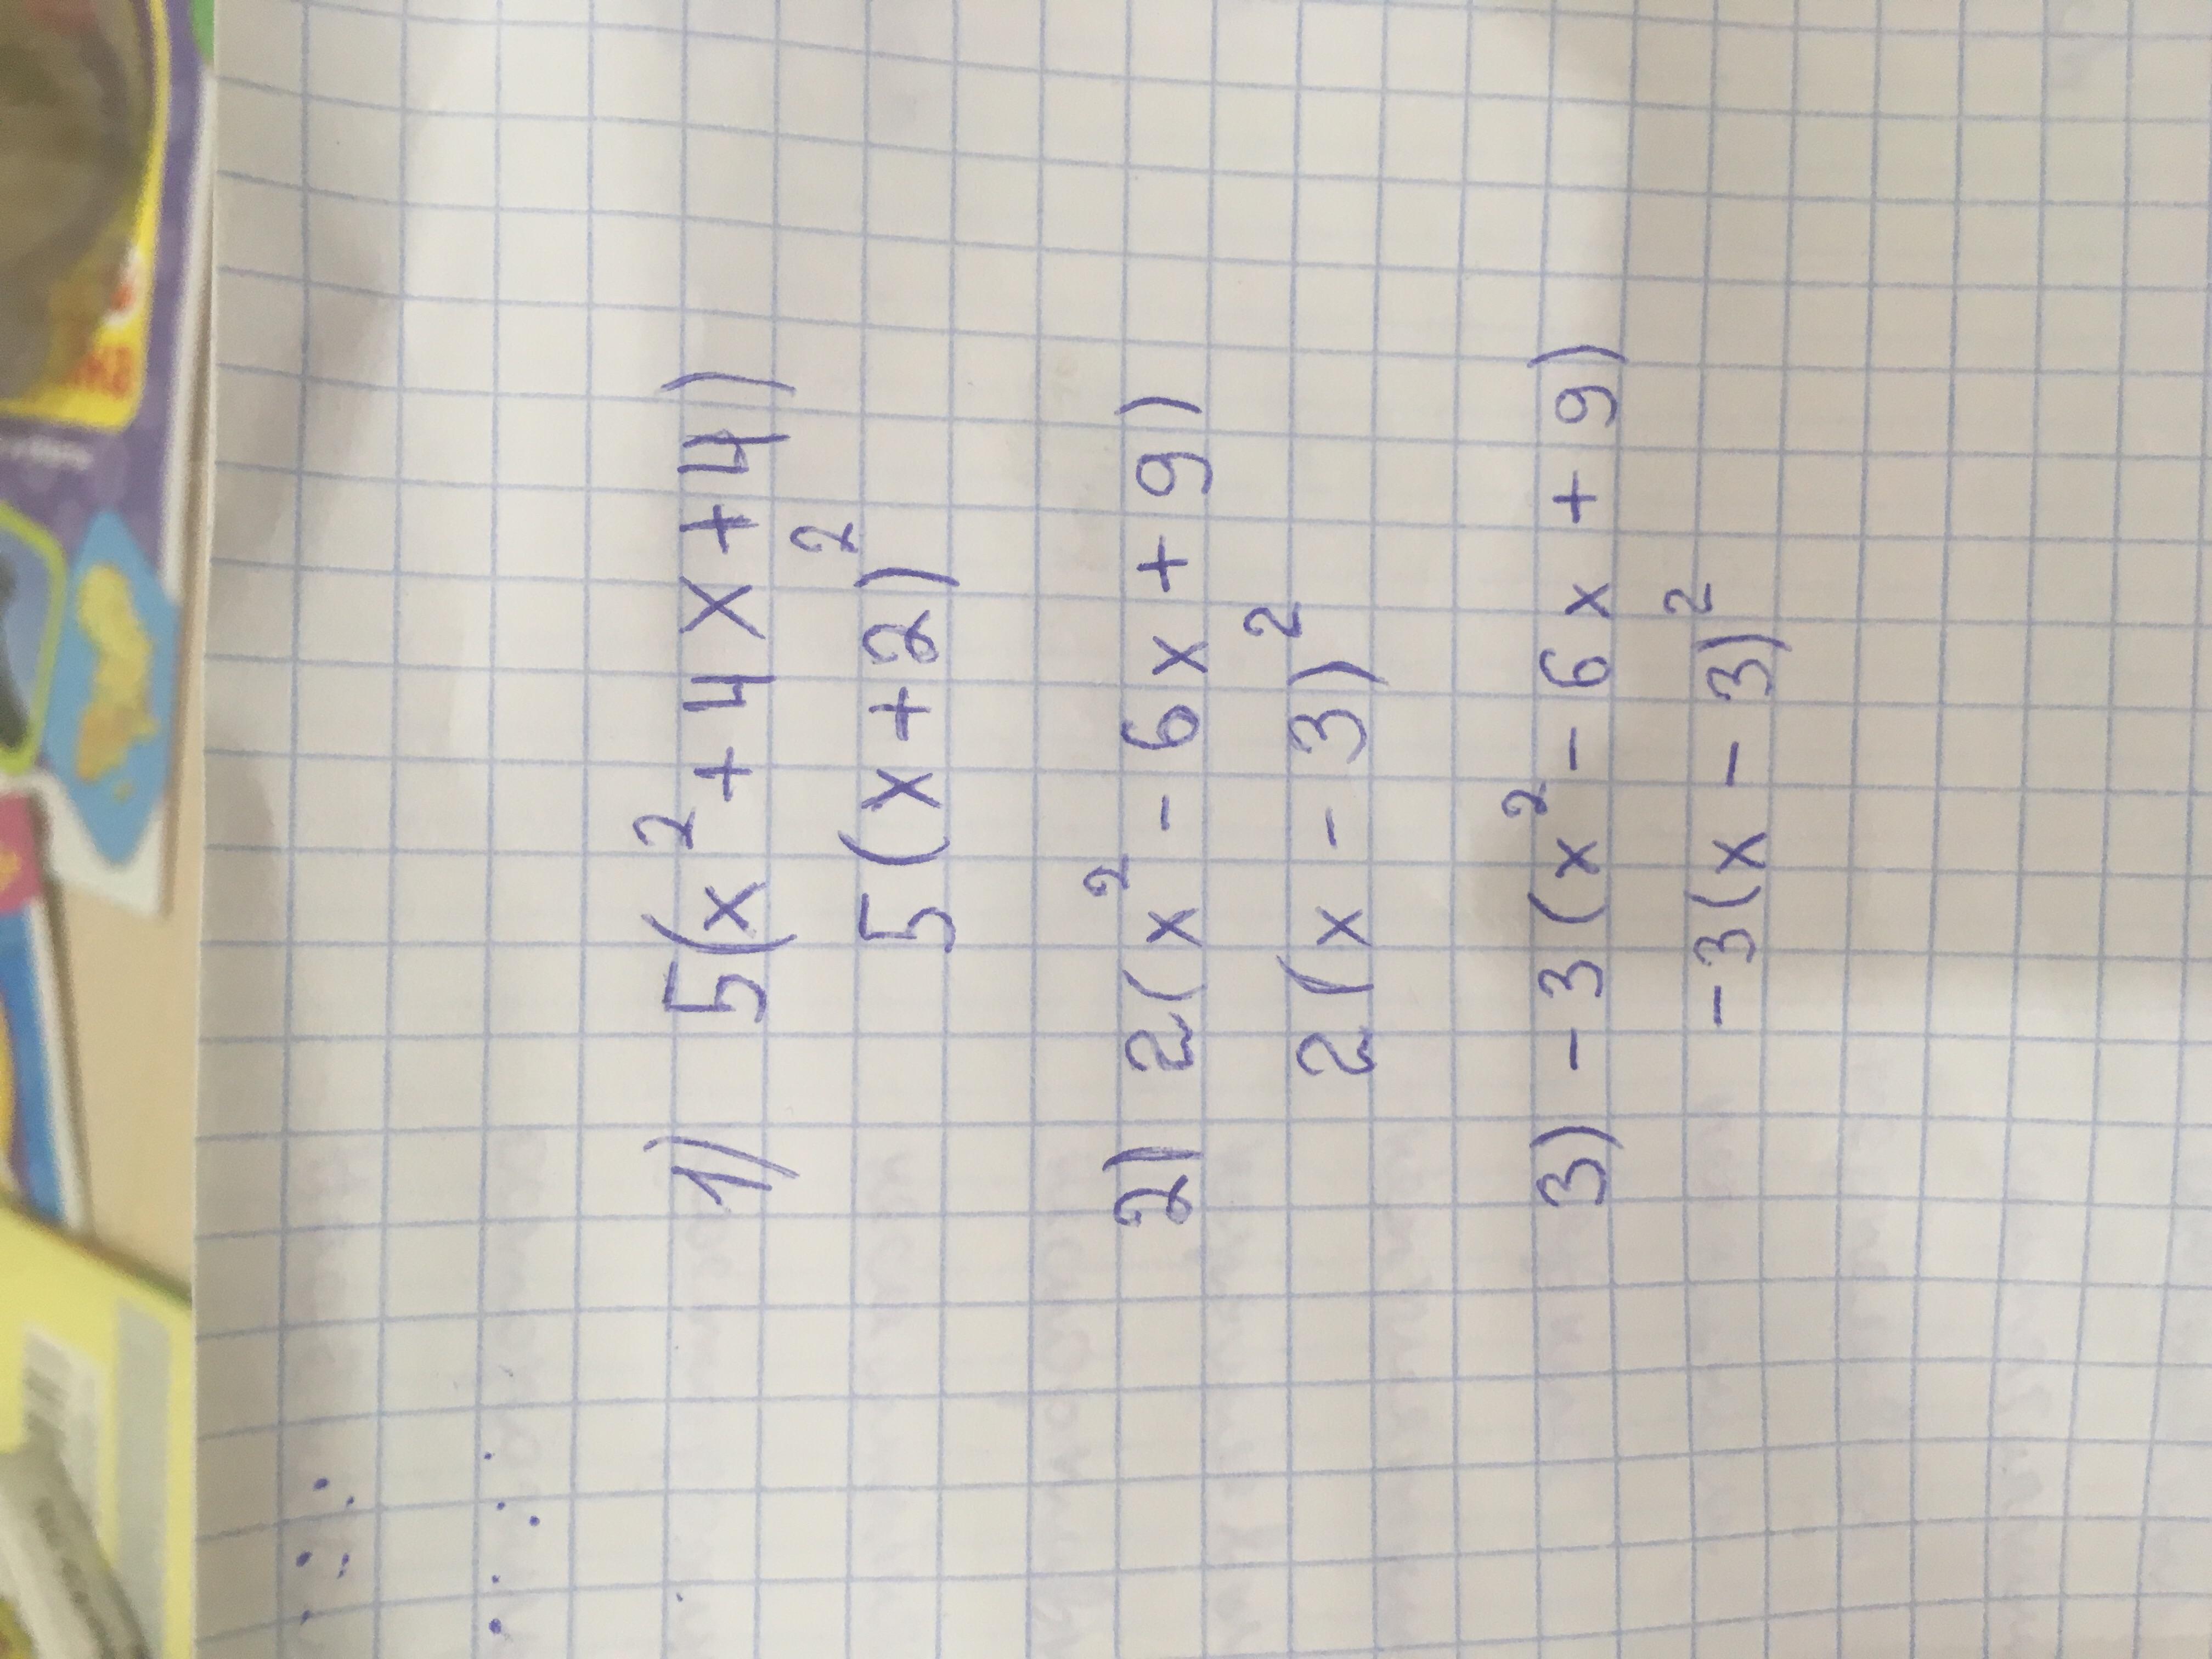 1) 5(x² + 4x + 4)
5(x + 2)²
2) 2(x² - 6x + 9)
2(x - 3)²
3) - 3(x² - 6x + 9)
- 3(x - 3)²